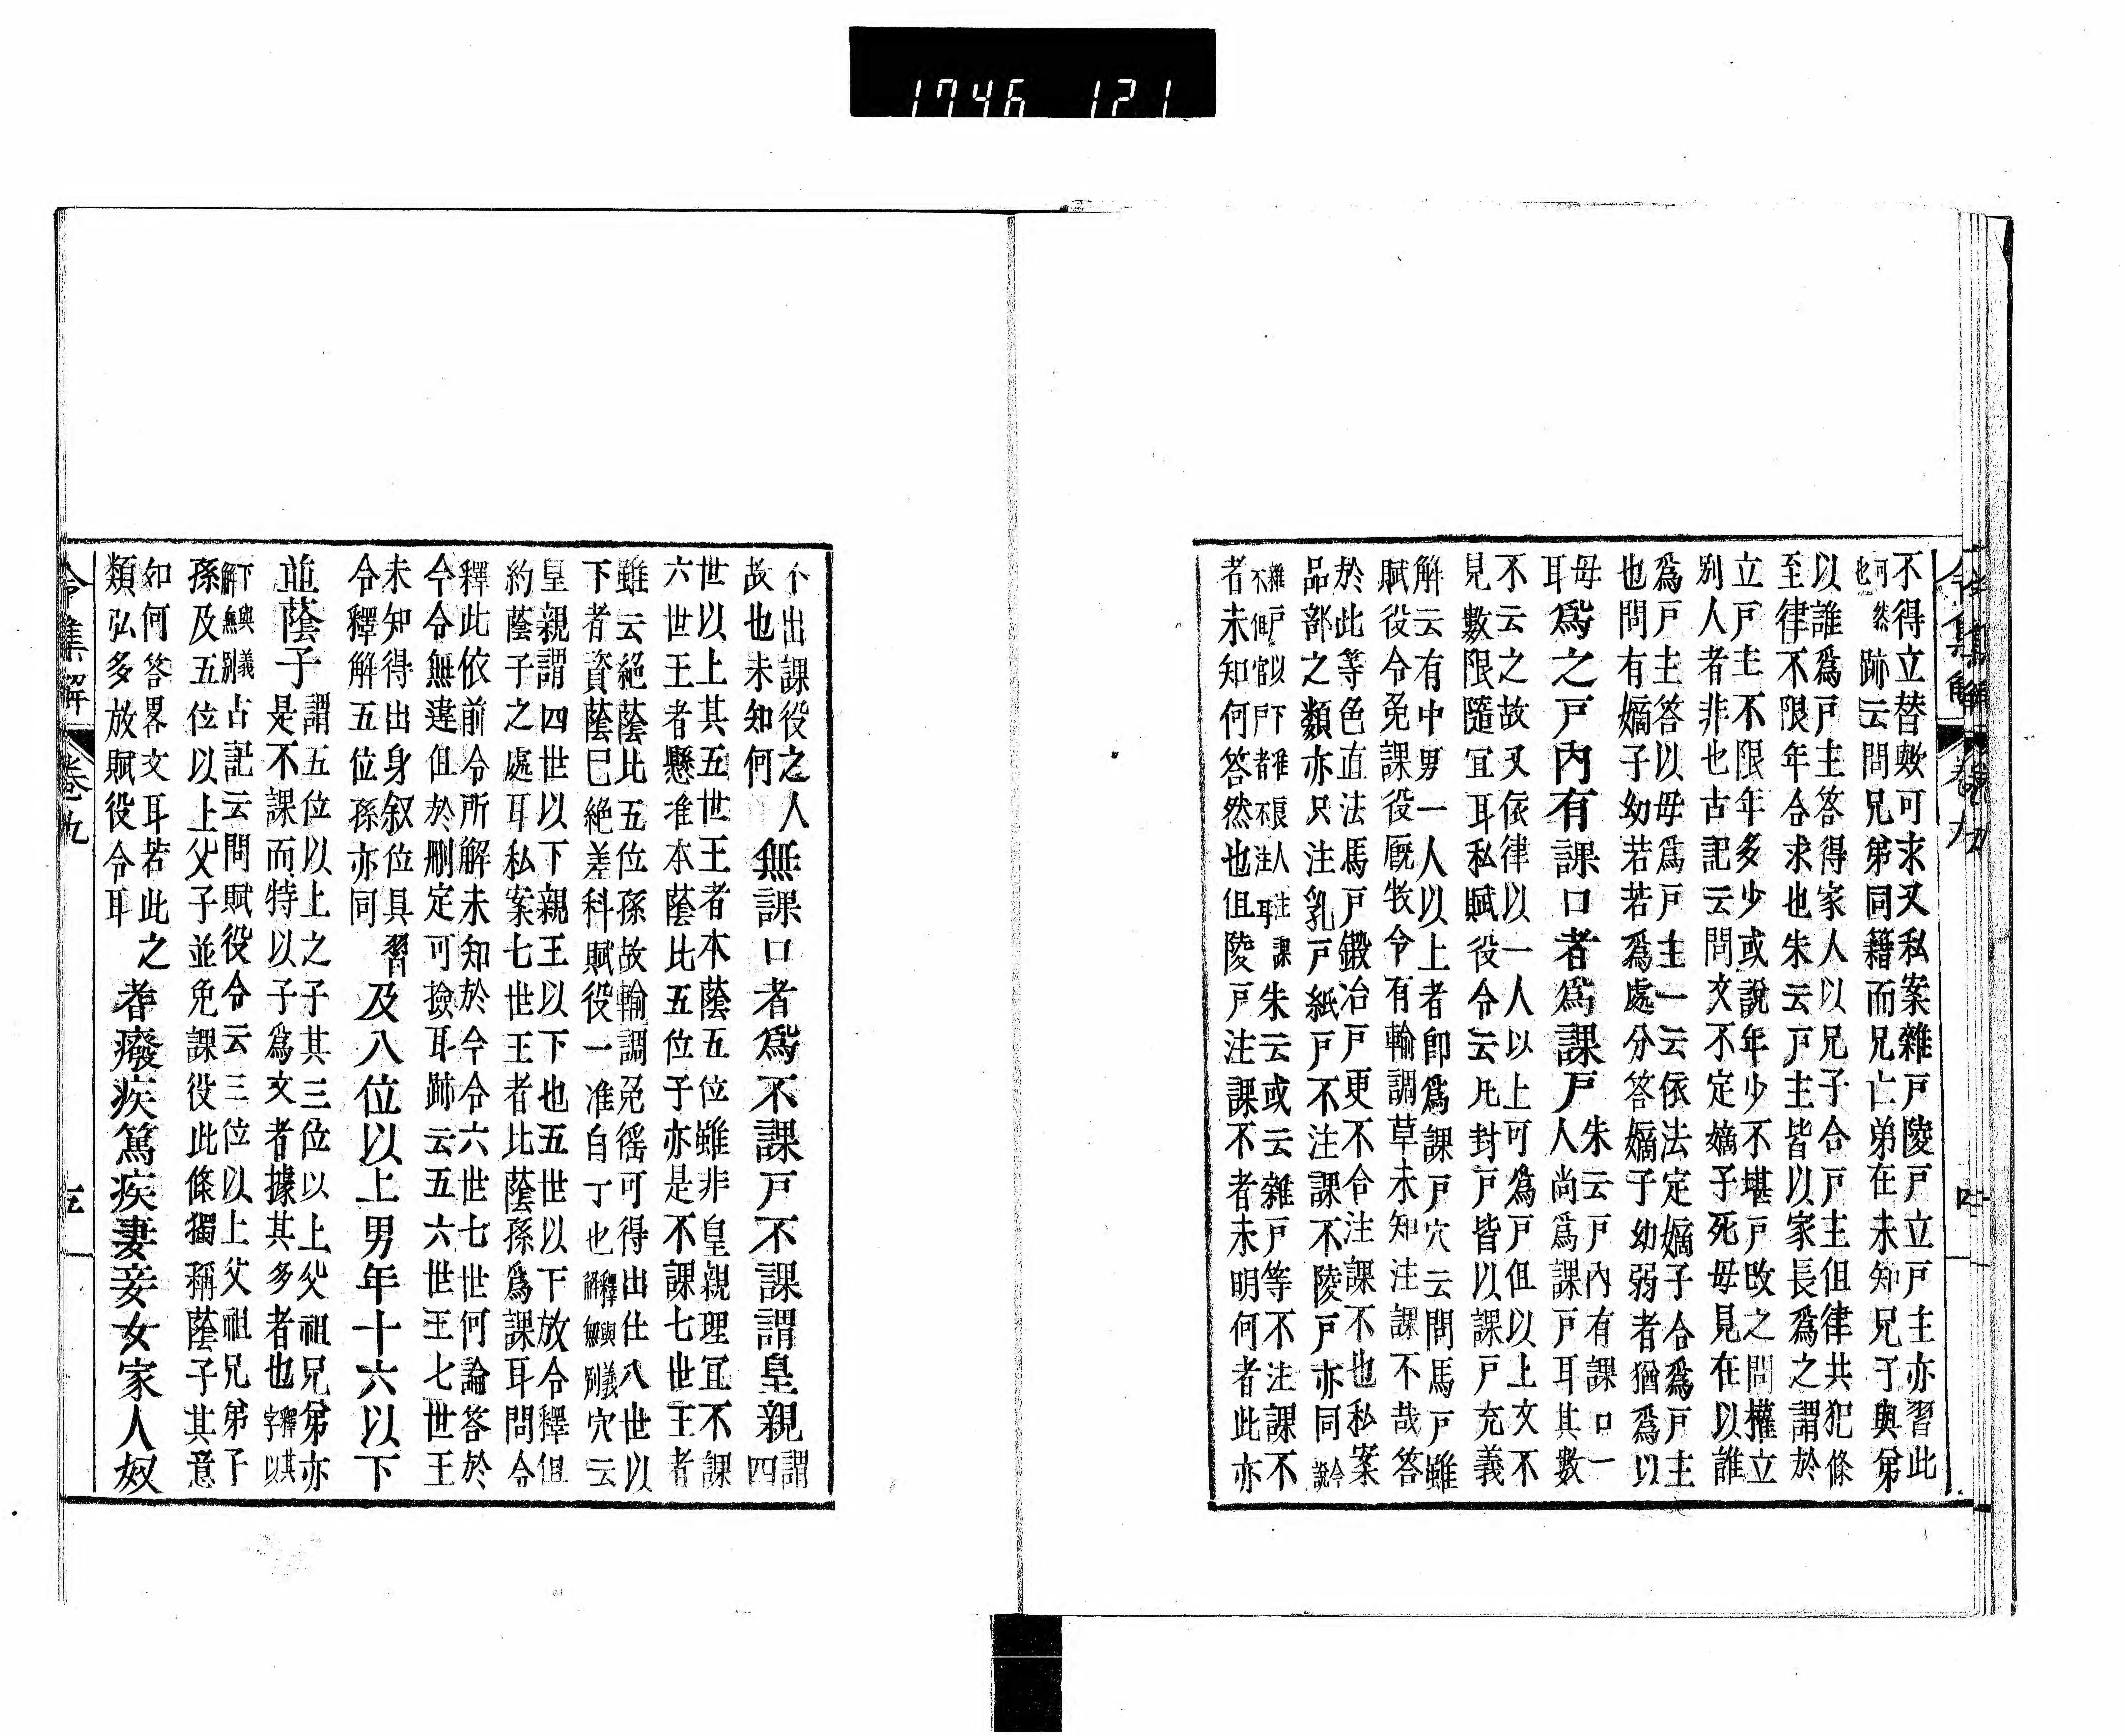 1746 12.1
令集解 卷九 四
不得立替歟可求又私案雜戸陵戸立戸主亦習此
可然也
跡云問兄弟同籍而兄亡弟在未知兄子與弟
以誰爲戸主答得家人以兄子合戸主但律共犯條
至律不限年合求也朱云戸主皆以家長爲之謂於
立戸主不限年多少或説年少不堪戸政之問權立
別人者非也古記云問文不定嫡子死毋見在以誰
爲戸主答以毋爲戸主一云依法定嫡子合爲戸主
也問有嫡子幼若若爲處分答嫡子幼弱者猶爲以
毋
耳
爲之戸內有課口者爲課戸
朱云戸內有課口一
人尚爲課戸耳其數
不云之故又依律以一人以上可爲戸但以上文不
見數限隨宜耳私賦役令云凡封戸皆以課戸充義
解云有中男一人以上者卽爲課戸穴云問馬戸雖
賦役令免課役厩牧令有輸調草未知注課不哉答
於此等色直法馬戸鍛冶戸更不合注課不也私案
品部之類亦只注乳戸紙戸不注課不陵戸亦同
令説
雜戸以下雖良人注
不但官戸者不注耳課
朱云或云雜戸等不注課不
者未知何答然也但陵戸注課不者未明何者此亦
不出課役之人
故也未知何
無課口者爲不課戸不課謂皇親
謂
四
世以上其五世王者本蔭五位雖非皇親理宜不課
六世王者懸准本蔭比五位子亦是不課七世王者
雖云絕蔭比五位孫故輸調免徭可得出仕八世以
下者資蔭已絕差科賦役一准白丁也
釋與義
解無別
穴云
皇親謂四世以下親王以下也五世以下放令釋但
約蔭子之處耳私案七世王者比蔭孫爲課耳問令
釋此依前令所解未知於今令六世七世何論答於
今令無違但於刪定可撿耳跡云五六世王七世王
未知得出身叙位具
令釋解五位孫亦同
習
及八位以上男年十六以下
並蔭子
謂五位以上之子其三位以上父祖兄弟亦
是不課而特以子爲文者據其多者也
釋其
字以
下與義
解無別
占記云問賦役令云三位以上父祖兄弟子
孫及五位以上父子並免課役此條獨稱蔭子其意
如何答畧文耳若此之
類弘多放賦役令耳
耆癈疾篤疾妻妾女家人奴
令集解 卷九 五